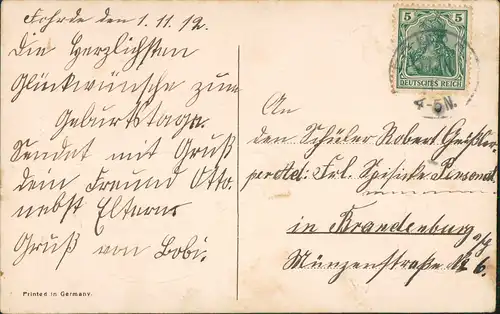 Fohrde den 1.11.12.
Die Herzlichsten
Glückwünsche zum
Geburtstage.
Sendet mit Gruß
dein Freund Otto.
nebst Eltern.
Gruß von Bobi.
Printed in Germany.
5 5
DEUTSCHES REICH
4-5N.
An
den Schüler Robert
Frl.
in Brandenburg a/H
Münzenstraße № 6.